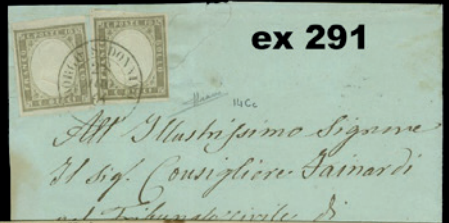 ex 291
C. POSTE
BORGO S. DONNINO
14Cc
All' Illustrissimo Signore
Il Sig. Consigliere Fainardi
nel Tribunale civile di